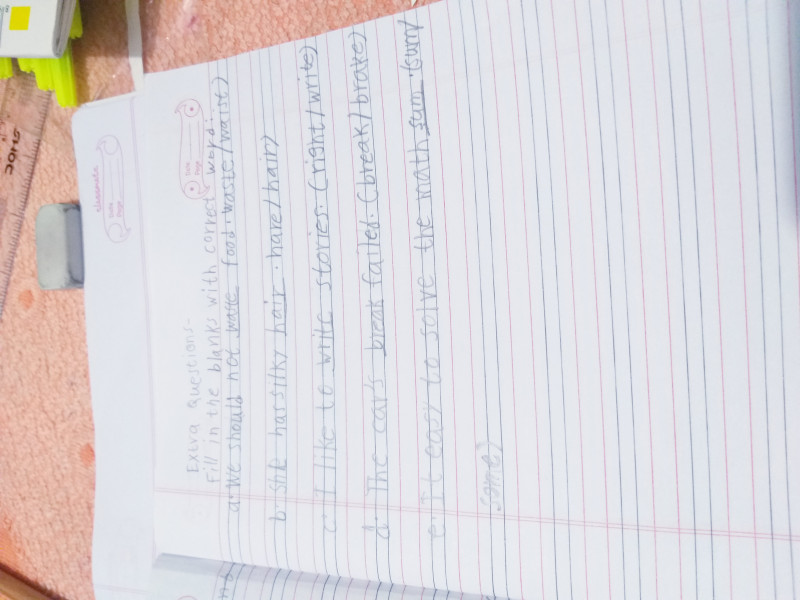 Extra Questions-
Fill in the blanks with correct word.
a. We should not waise food. waste/waise)
b. She has silky hair. hare/hair)
c. I like to write stories. (right/write)
d. The car's break failed. (break/brake)
e. It easy to solve the math sum. (sum/
some)
classmate
Date
Page
Date
Page